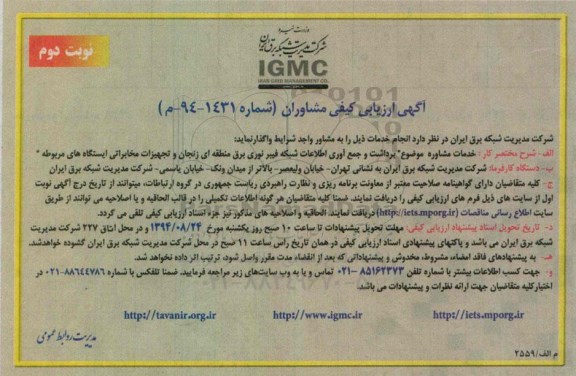 وزارت نیرو
شرکت مدیریت شبکه برق ایران
نوبت دوم
IGMC
IRAN GRID MANAGEMENT CO.
آگهی ارزیابی کیفی مشاوران (شماره ۱۴۳۱-۹۴-م)
شرکت مدیریت شبکه برق ایران در نظر دارد انجام خدمات ذیل را به مشاور واجد شرایط واگذارنماید:
الف - شرح مختصر کار : خدمات مشاوره موضوع" برداشت و جمع آوری اطلاعات شبکه فیبر نوری برق منطقه ای زنجان و تجهیزات مخابراتی ایستگاه های مربوطه "
ب- دستگاه کارفرما: شرکت مدیریت شبکه برق ایران به نشانی تهران- خیابان ولیعصر- بالاتر از میدان ونک- خیابان یاسمی- شرکت مدیریت شبکه برق ایران
ج- کلیه متقاضیان دارای گواهینامه صلاحیت معتبر از معاونت برنامه ریزی و نظارت راهبردی ریاست جمهوری در گروه ارتباطات، میتوانند از تاریخ درج آگهی نوبت
اول از سایت های ذیل فرم های ارزیابی کیفی را دریافت نمایند. ضمنا کلیه متقاضیان هر گونه اطلاعات تکمیلی را در قالب الحاقیه و یا اصلاحیه می توانند از طریق
سایت اطلاع رسانی مناقصات (http://iets.mporg.ir) دریافت نمایند. الحاقیه و اصلاحیه های مذکور نیز جزء اسناد ارزیابی کیفی تلقی می گردد.
د- تاریخ تحویل اسناد پیشنهاد ارزیابی کیفی: مهلت تحویل پیشنهادات تا ساعت ۱۰ صبح روز یکشنبه مورخ ۱۳۹۴/۰۸/۲۴ و در محل اتاق ۲۲۷ شرکت مدیریت
شبکه برق ایران می باشد و پاکتهای پیشنهادی اسناد ارزیابی کیفی در همان تاریخ راس ساعت ۱۱ صبح در محل شرکت مدیریت شبکه برق ایران گشوده خواهدشد.
هـ- به پیشنهادهای فاقد امضاء، مشروط، مخدوش و پیشنهاداتی که بعد از انقضاء مدت مقرر واصل شود، ترتیب اثر داده نخواهد شد.
و- جهت کسب اطلاعات بیشتر با شماره تلفن ۸۵۱۶۲۳۷۳-۰۲۱ تماس و یا به وب سایت‌های زیر مراجعه فرمایید. ضمنا تلفکس با شماره ۸۸۶۴۴۷۸۶-۰۲۱ در
اختیار کلیه متقاضیان جهت ارائه نظرات و پیشنهادات می باشد.
http://iets.mporg.ir http://www.igmc.ir http://tavanir.org.ir
مدیریت روابط عمومی
م الف/۲۵۵۹